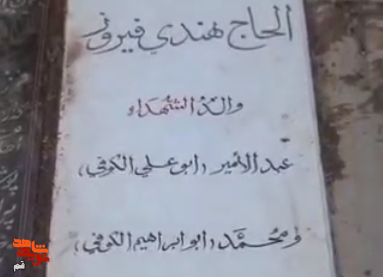 الحاج هندي فيروز
والد الشهداء
عبد الأمير (ابو علي الكوفي)
و محمّد (ابو ابراهيم الكوفي)
قم